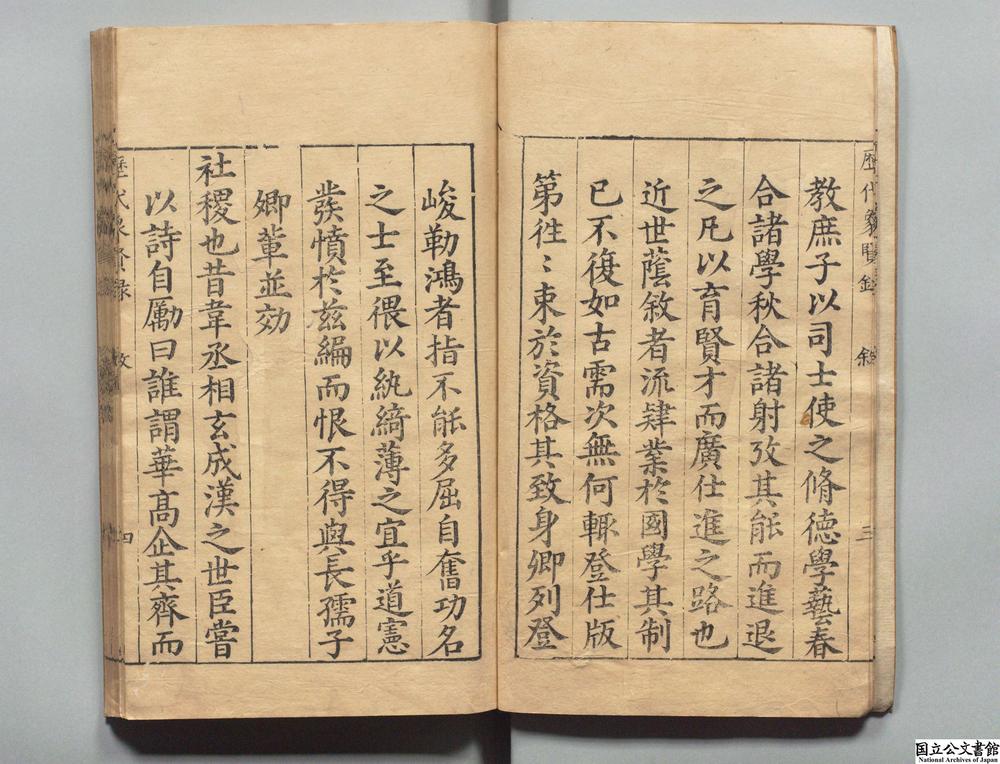 歴代彖賢録 敘 三
教庶子以司士使之脩德學藝春
合諸學秋合諸射攷其能而進退
之凡以育賢才而廣仕進之路也
近世蔭敘者流肄業於國學其制
已不復如古需次無何輙登仕版
第徃〻束於資格其致身卿列登
峻勒鴻者指不能多屈自奮功名
之士至猥以紈綺薄之宜乎道憲
發憤於兹編而恨不得與長孺子
卿輩並効
社稷也昔韋丞相玄成漢之世臣嘗
以詩自勵曰誰謂華髙企其齊而
歷代 賢録 四
国立公文書館
National Archives of Japan